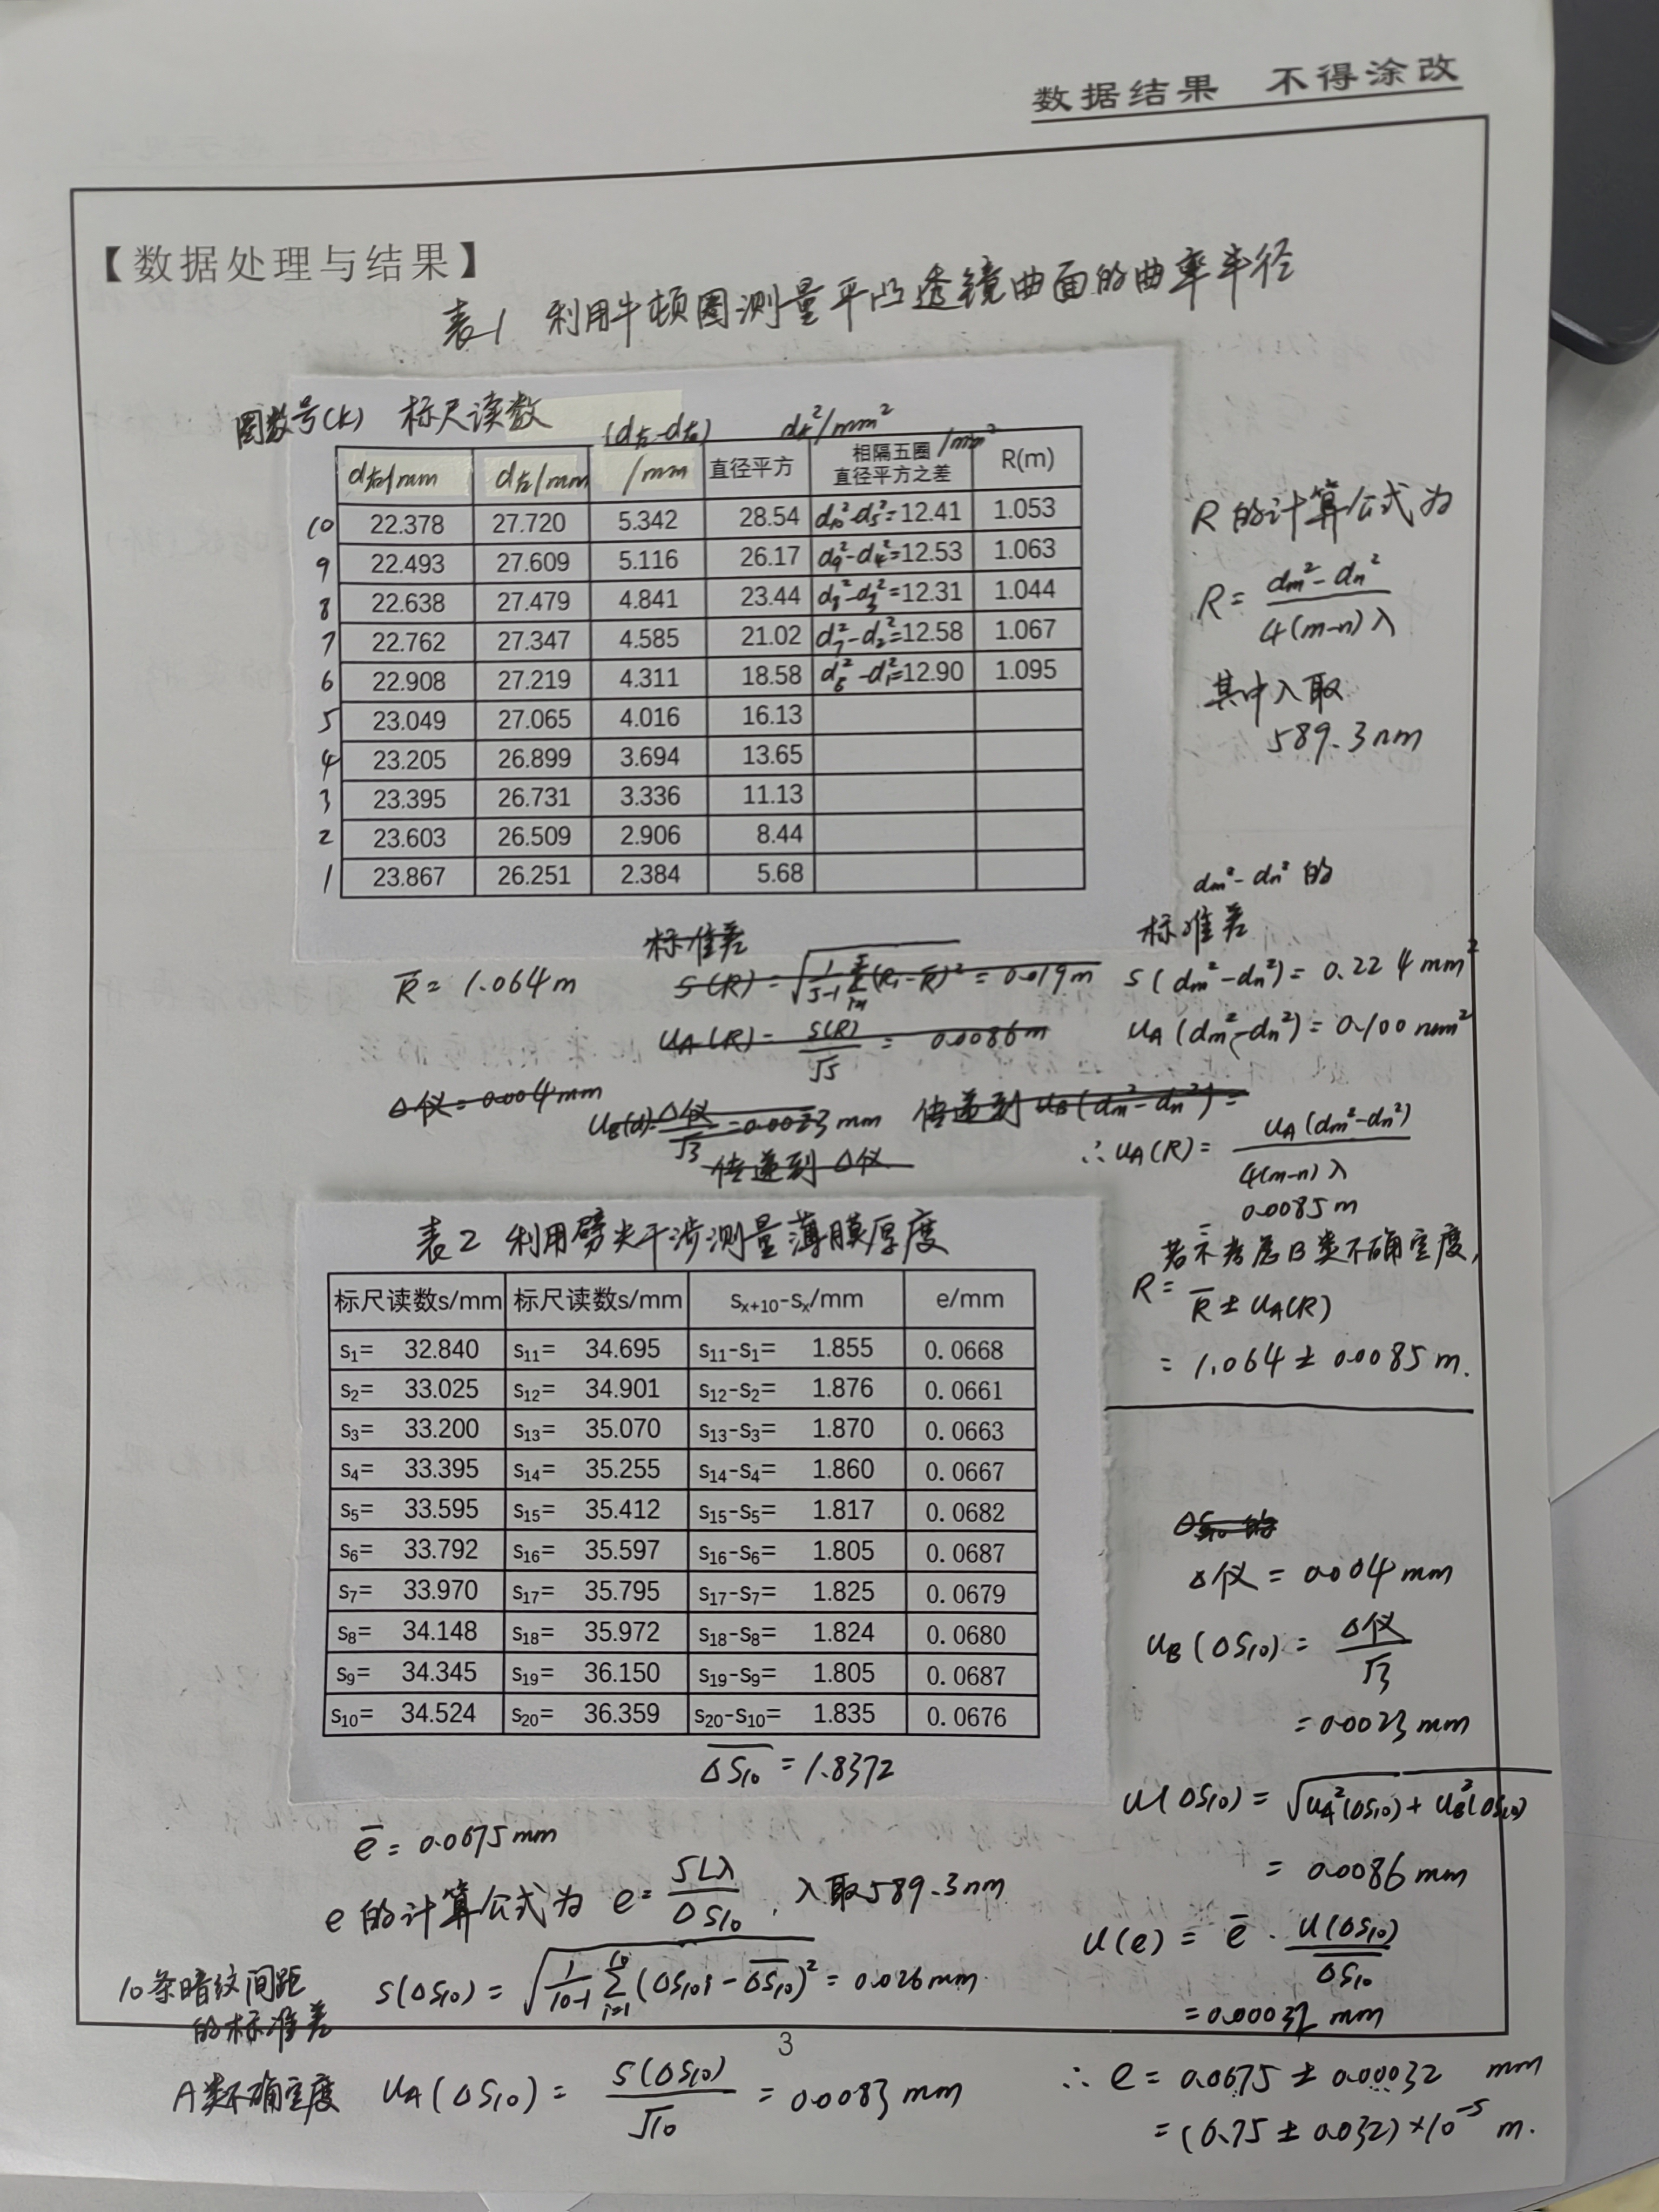 数据结果 不得涂改
【数据处理与结果】
表1 利用牛顿圈测量平凸透镜曲面的曲率半径
圈数号(k) 标尺读数 (d右-d左) dk²/mm² /mm²
d左/mm d右/mm /mm 直径平方 相隔五圈直径平方之差 R(m)
10 22.378 27.720 5.342 28.54 d₁₀²-d₅²=12.41 1.053
9 22.493 27.609 5.116 26.17 d₉²-d₄²=12.53 1.063
8 22.638 27.479 4.841 23.44 d₈²-d₃²=12.31 1.044
7 22.762 27.347 4.585 21.02 d₇²-d₂²=12.58 1.067
6 22.908 27.219 4.311 18.58 d₆²-d₁²=12.90 1.095
5 23.049 27.065 4.016 16.13
4 23.205 26.899 3.694 13.65
3 23.395 26.731 3.336 11.13
2 23.603 26.509 2.906 8.44
1 23.867 26.251 2.384 5.68
R 的计算公式为
R = (dm²-dn²)/(4(m-n)λ)
其中λ取
589.3nm
标准差
R̄ = 1.064m
S(R) = √(1/(5-1) Σ(Ri-R̄)²) = 0.019m
uA(R) = S(R)/√5 = 0.0086m
Δ仪 = 0.004mm
uB(d) = Δ仪/√3 = 0.0023mm
传递到 uB(dm²-dn²) =
传递到 Δ仪
dm²-dn² 的
标准差
S(dm²-dn²) = 0.224mm²
uA(dm²-dn²) = 0.100mm²
∴ uA(R) = uA(dm²-dn²)/(4(m-n)λ)
= 0.0085m
若不考虑B类不确定度,
R = R̄ ± uA(R)
= 1.064 ± 0.0085 m.
表2 利用劈尖干涉测量薄膜厚度
标尺读数s/mm 标尺读数s/mm sₓ₊₁₀-sₓ/mm e/mm
s₁= 32.840 s₁₁= 34.695 s₁₁-s₁= 1.855 0.0668
s₂= 33.025 s₁₂= 34.901 s₁₂-s₂= 1.876 0.0661
s₃= 33.200 s₁₃= 35.070 s₁₃-s₃= 1.870 0.0663
s₄= 33.395 s₁₄= 35.255 s₁₄-s₄= 1.860 0.0667
s₅= 33.595 s₁₅= 35.412 s₁₅-s₅= 1.817 0.0682
s₆= 33.792 s₁₆= 35.597 s₁₆-s₆= 1.805 0.0687
s₇= 33.970 s₁₇= 35.795 s₁₇-s₇= 1.825 0.0679
s₈= 34.148 s₁₈= 35.972 s₁₈-s₈= 1.824 0.0680
s₉= 34.345 s₁₉= 36.150 s₁₉-s₉= 1.805 0.0687
s₁₀= 34.524 s₂₀= 36.359 s₂₀-s₁₀= 1.835 0.0676
ΔS₁₀‾ = 1.8372
ē = 0.0675mm
e 的计算公式为 e = 5Lλ/ΔS₁₀, λ取589.3nm
10条暗纹间距
的标准差
S(ΔS₁₀) = √(1/(10-1) Σᵢ₌₁¹⁰(ΔS₁₀i - ΔS₁₀‾)²) = 0.026mm.
A类不确定度 uA(ΔS₁₀) = S(ΔS₁₀)/√10 = 0.0083mm
ΔS₁₀ 的
Δ仪 = 0.004mm
uB(ΔS₁₀) = Δ仪/√3
= 0.0023mm
u(ΔS₁₀) = √(uA²(ΔS₁₀) + uB²(ΔS₁₀))
= 0.0086mm
u(e) = ē · u(ΔS₁₀)/ΔS₁₀‾
= 0.00032 mm
3
∴ e = 0.0675 ± 0.00032 mm
= (6.75 ± 0.032)×10⁻⁵ m.